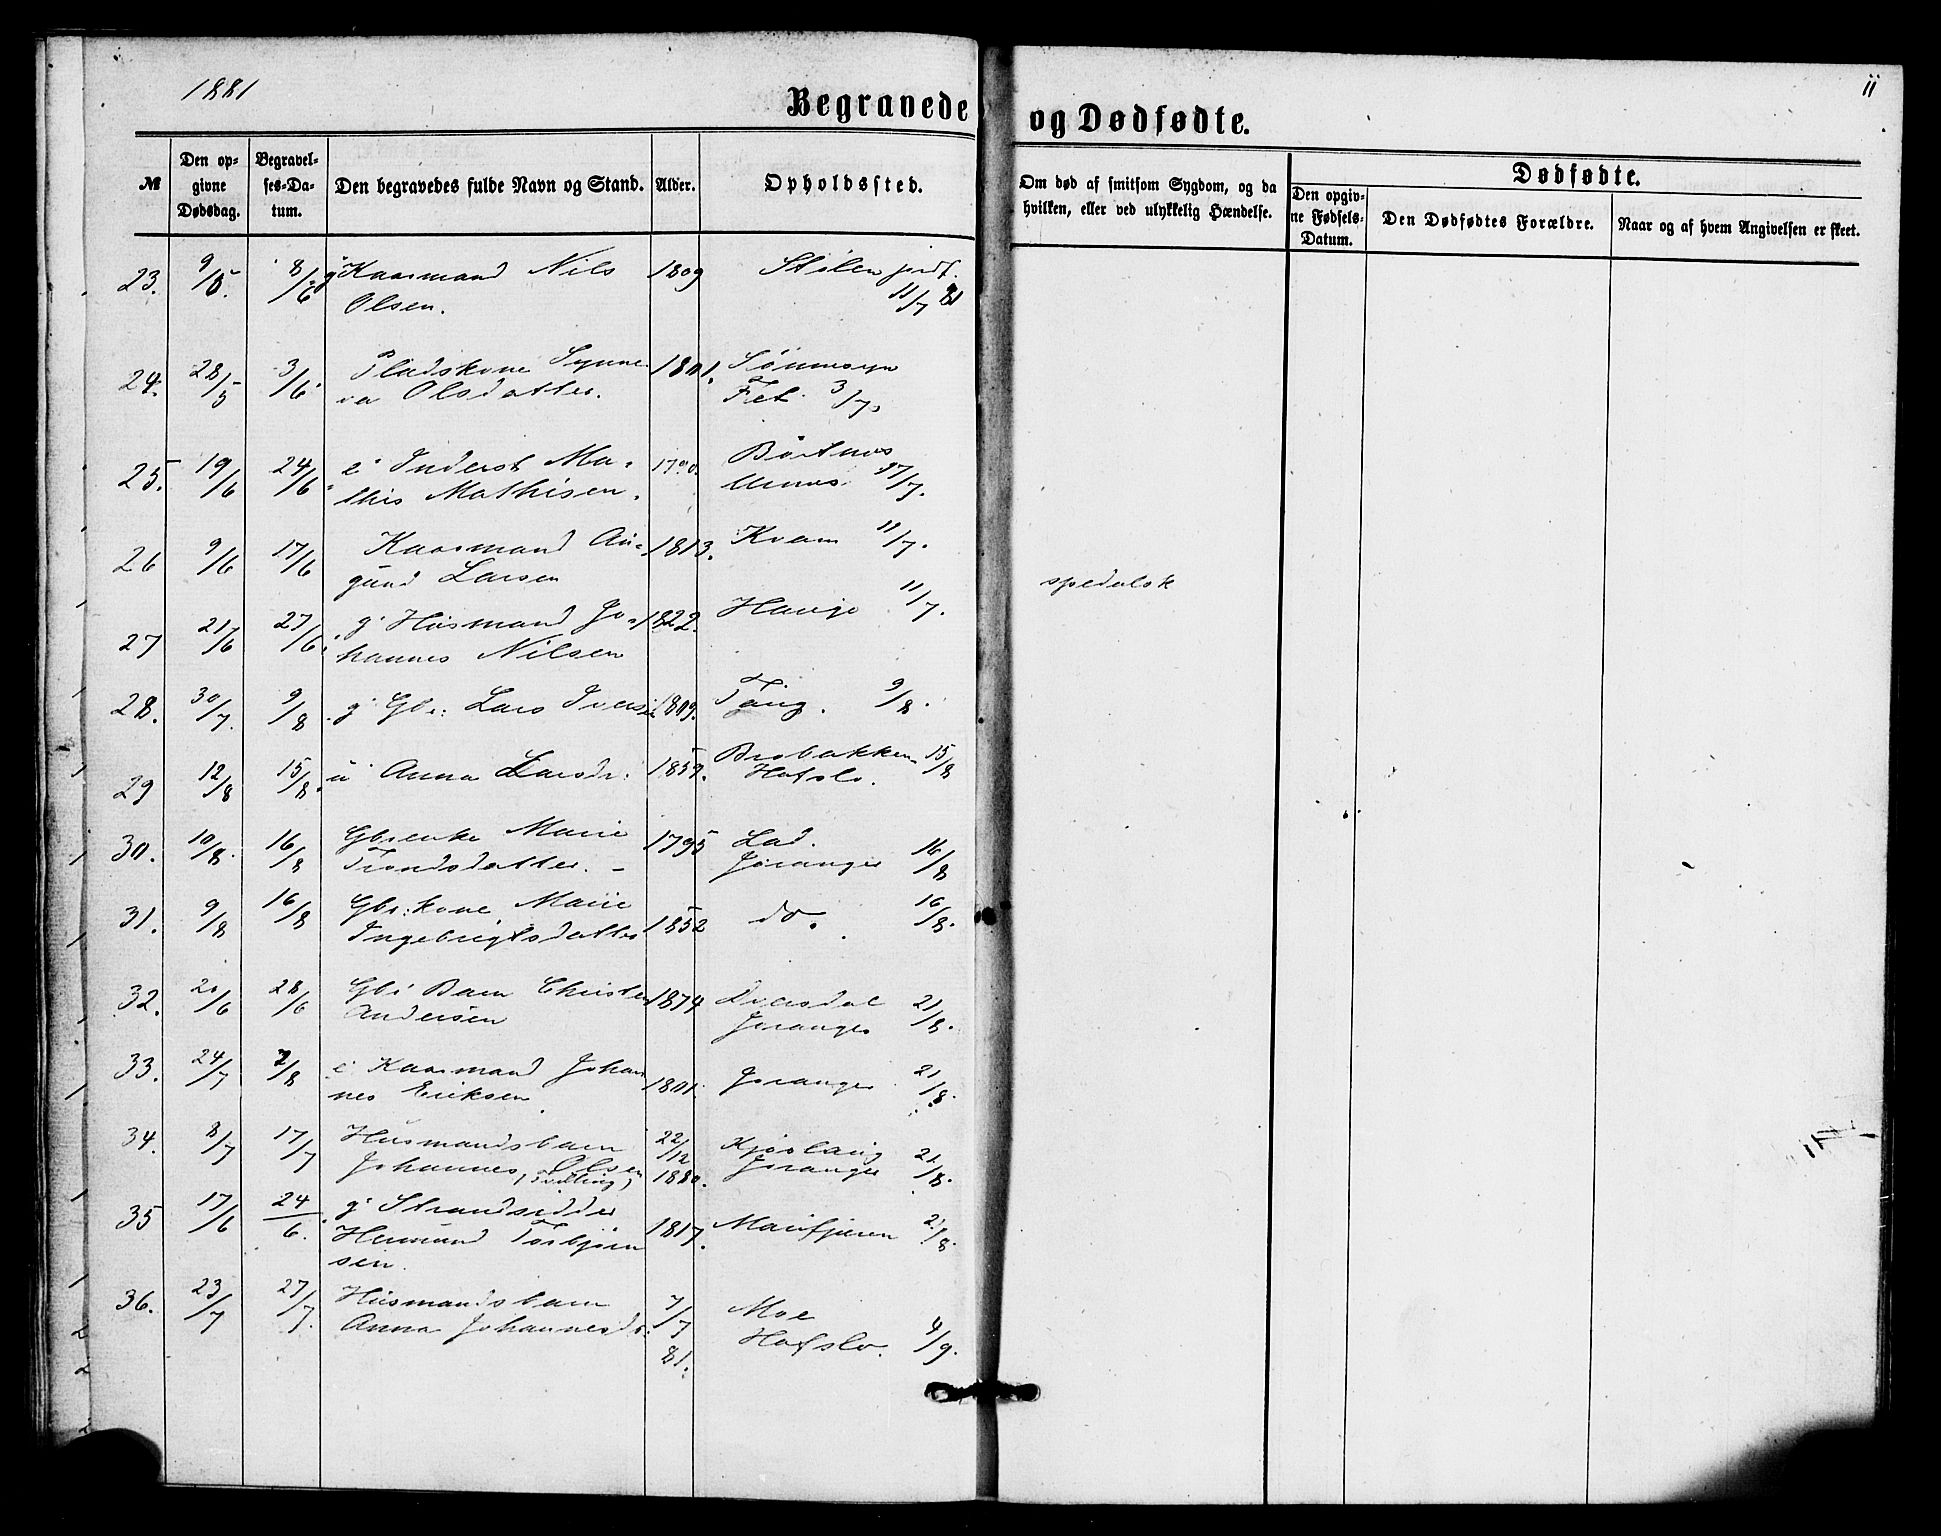 1881
Begravede og Dødfødte.
11
№
Den op-
givne
Dødsdag.
Begravel-
ses-Da-
tum.
Den begravedes fulde Navn og Stand.
Alder.
Opholdssted.
Om død af smitsom Sygdom, og da
hvilken, eller ved ulykkelig Hændelse.
Dødfødte.
Den opgiv-
ne Fødsels-
Datum.
Den Dødfødtes Forældre.
Naar og af hvem Angivelsen er skeet.
23. 9/5. 8/6 g Kaarmand Nils 1809
Olsen. 11/7 81
24. 28/5 3/6. Pladskone Synne- 1801. Sönnesyn
va Olsdatter. Fet. 3/7.
25. 19/6 24/6. e. Inderst Ma- Börtnes
this Mathisen. 17/7.
26 9/6 17/6 Kaarmand Au- 1813. Kvam 11/7.
gund Larsen
27 21/6 27/6. g. Husmand Jo- 1822. Hauge 11/7. spedalsk
hannes Nilsen
28. 30/7. 9/8. g. Gbr: Lars Iversen 1809. Tang. 9/8.
29 12/8 15/8. u. Anna Larsdr: 1859. Brobakken 15/8
Hafslo.
30. 10/8. 16/8 Gbrenke Marie 1795 Lad.
Trondsdatter. Joranger 16/8
31. 9/8 16/8 Gbr:kone Marie 1852 do. 16/8.
Ingebrigtsdatter
32. 20/6 28/6 Gbr Barn Christen 1874 Kversdal 21/8.
Andersen Joranger
33. 24/7 2/8 e. Kaarmand Johan 1801. Joranger 21/8.
nes Eriksen
34. 8/7 17/7 Husmandsbarn 22/12 Kjörlaug 21/8.
Johannes Olsen 1880. Joranger
(Tvilling)
35 17/6 24/6. g. Strandsidder 1817. Marifjæren 21/8.
Hermund Torbjörn
sen.
36. 23/7 27/7. Husmandsbarn 7/7 Moe
Anna Johannesdr. 81. Hafslo. 4/9.